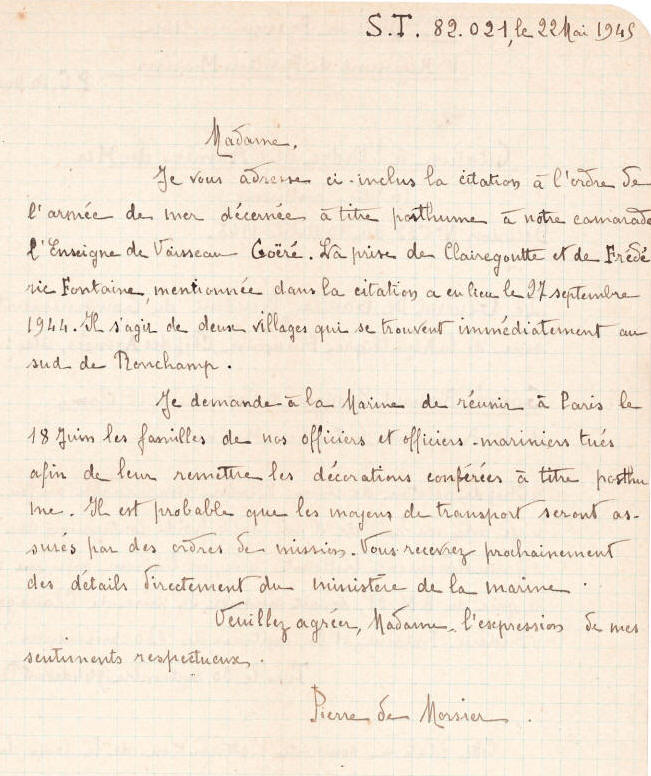 S.T. 82.021, le 22 Mai 1945
Madame,
Je vous adresse ci-inclus la citation à l'ordre de
l'armée de mer décernée à titre posthume à notre camarade
l'Enseigne de Vaisseau Goëré. La prise de Clairegoutte et de Frédé
ric Fontaine, mentionnée dans la citation a eu lieu le 27 septembre
1944. Il s'agit de deux villages qui se trouvent immédiatement au
sud de Ronchamp.
Je demande à la Marine de réunir à Paris le
18 Juin les familles de nos officiers et officiers-mariniers tués
afin de leur remettre les décorations conférées à titre posthu
me. Il est probable que les moyens de transport seront as-
surés par des ordres de mission. Vous recevrez prochainement
des détails directement du ministère de la marine.
Veuillez agréer, Madame, l'expression de mes
sentiments respectueux.
Pierre de Morsier.